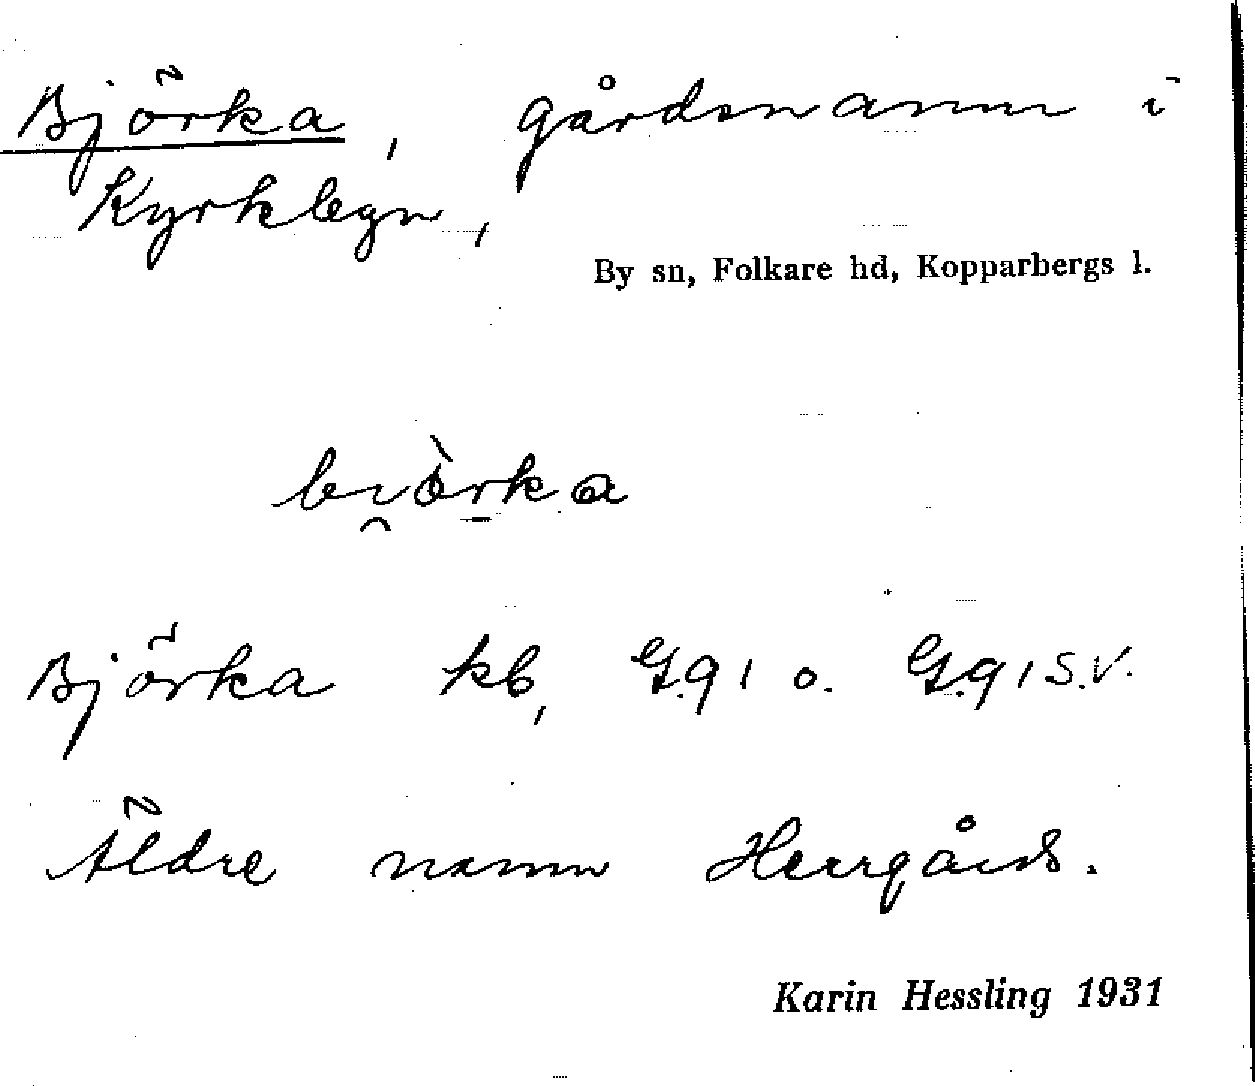 Björka, gårdsnamn i
Kyrkbyn,
By sn, Folkare hd, Kopparbergs l.
Björka kb, G.g 1 o. G.g 1 S.V.
Äldre namn Herrgårds.
Karin Hessling 1931